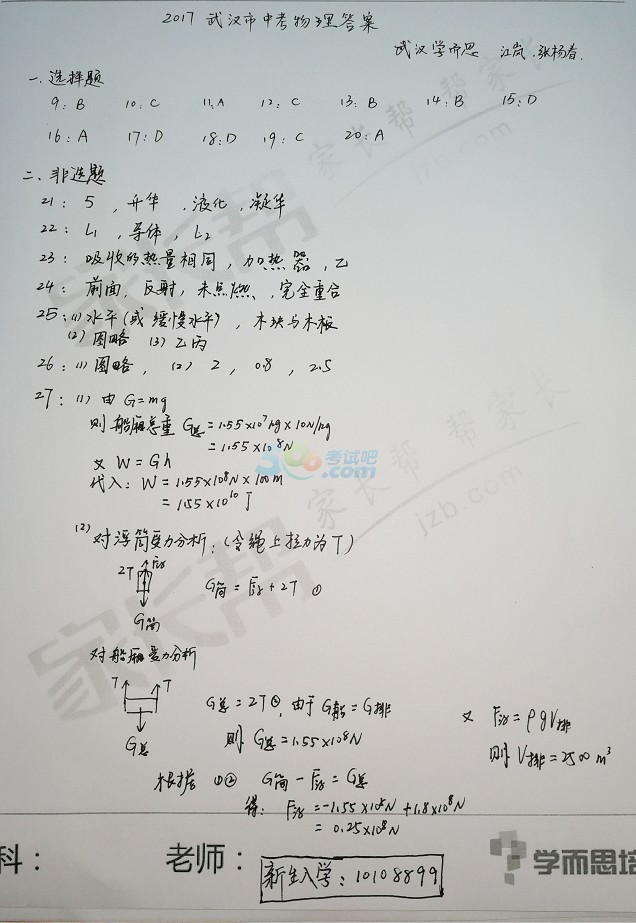 2017 武汉市中考物理答案
武汉学而思 江岚.张杨春.
一.选择题
9:B 10:C 11:A 12:C 13:B 14:B 15:D
16:A 17:D 18:D 19:C 20:A
二.非选题
21: 5,升华.液化,凝华
22: L₁,导体,L₂
23: 吸收的热量相同,加热器,乙
24: 前面,反射,未点燃,完全重合
25:(1)水平(或缓慢水平),木块与木板
(2)图略 (3)乙丙
26:(1)图略,(2) 2, 0.8, 2.5
27:(1)由G=mg
则船厢总重 G总=1.55×10⁷kg×10N/kg
=1.55×10⁸N
又 W=Gh
代入: W=1.55×10⁸N×100m
=1.55×10¹⁰J
(2)对浮筒受力分析:(令绳上拉力为T)
2T F浮
G筒=F浮+2T ①
G筒
对船厢受力分析
T T
G总=2T②,由于G船=G排
又 F浮=ρgV排
G总
则 G总=1.55×10⁸N
则 V排=2500m³
根据 ①② G筒-F浮=G总
得: F浮=-1.55×10⁸N+1.8×10⁸N
=0.25×10⁸N
科: 老师: 学而思培
新生入学:10108899
家长帮
家长帮 帮家长
jzb.com
家长帮 帮家长
jzb.com
家长帮
考试吧
366.com